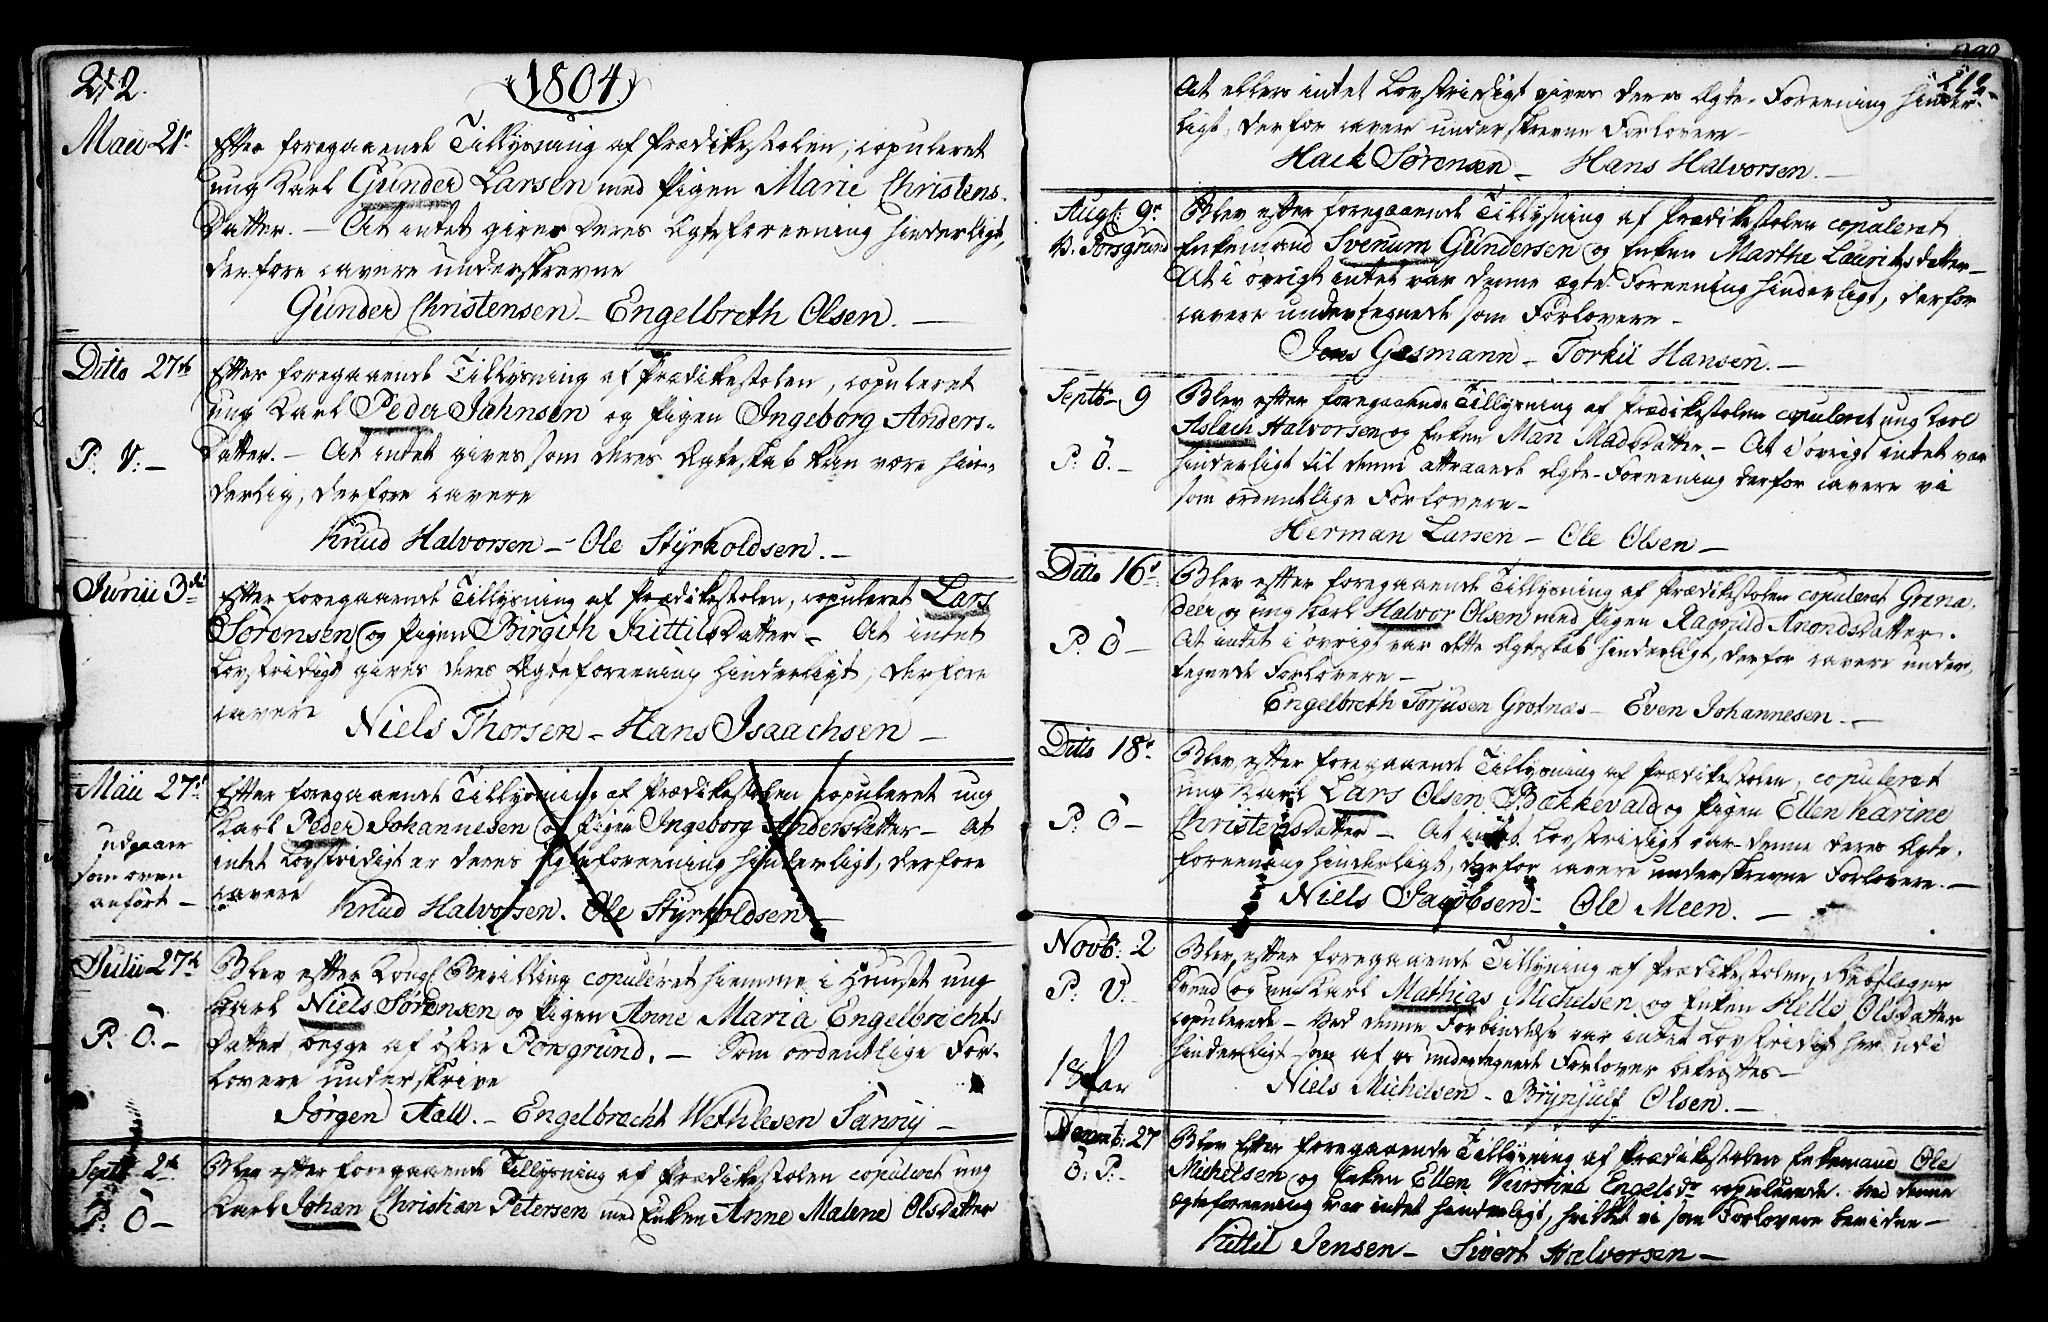 212.
1804.
Maii 21.
Efter foregaaende Tillysning af Prædikestolen, copuleret
ung Karl Gunder Larsen med Pigen Marie Christens-
Datter. — At intet gives deres Ægteforeening hinderligt,
derfore cavere underskrevne
Gunder Christensen — Engelbreth Olsen. —
Ditto 27de
P. V: —
Efter foregaaende Tillysning af Prædikestolen, copuleret
ung Karl Peder Jahnsen og Pigen Ingeborg Anders-
Datter. — At intet gives som deres Ægteskab kan være hin-
derlig, derfore cavere
Knud Halvorsen — Ole Styrkoldsen. —
Junii 3die
Efter foregaaende Tillysning af Prædikestolen, copuleret Lars
Sørensen og Pigen Birgith Kittilsdatter — At intet
Lovstridigt gives deres Ægteforeening hinderligt, derfore
cavere
Niels Thorsen — Hans Isaachsen —
Maii 27.
udgaaer
som oven
anført —
Efter foregaaende Tillysning af Prædikestolen copuleret ung
Karl Peder Johannesen og Pigen Ingeborg Andersdatter — At
intet Lovstridigt er deres Ægteforeening hinderligt, derfore
cavere
Knud Halvorsen. Ole Styrkoldsen —
Julii 27de
P. Ö. —
Blev efter Kongl Bevilling copuleret hiemme i Huuset ung
Karl Niels Sörensen og Pigen Anne Maria Engelbrechts
Datter, begge af östre Porsgrund. — Som ordentlige For-
lovere underskrive
Jørgen Aall. — Engelbracht Wethlesen Sanniy —
Septb 2de
P. Ö —
Blev efter foregaaende Tillysning af Prædikestolen copuleret ung
Karl Johan Christian Petersen med Enken Anne Malene Olsdatter
At ellers intet Lovstridigt gives deres Ægte-Foreening hinder-
ligt, derfor cavere underskrevne Forlovere —
Hack Sørensen — Hans Halvorsen. —
Augt: 9.
V. Porsgrund
Blev efter foregaaende Tillysning af Prædikestolen copuleret
Enkemand Svenum Gundersen og Enken Marthe Lauritsdatter —
At i övrigt intet var denne ægte Foreening hinderligt, derfor
cavere undertegnede som Forlovere —
Jens Gasmann — Torkil Hansen. —
Septb — 9
P: Ö. —
Blev efter foregaaende Tillysning af Prædikestolen copuleret ung Karl
Aslach Halvorsen og Enken Mari Madsdatter — At i övrigt intet var
hinderligt til denne attraaede Ægte-Foreening derfor cavere vi
som ordentlige Forlovere —
Herman Larsen — Ole Olsen —
Ditto 16.
P. Ö —
Blev efter foregaaende Tillysning af Prædikestolen copuleret Grena-
deer og ung Karl Halvor Olsen med Pigen Ragnild Anondsdatter.
At intet i övrigt var dette Ægteskab hinderligt, derfor cavere under-
tegnede Forlovere —
Engelbreth Torjusen Grotnæs — Even Johannesen. —
Ditto 18.
P: Ö —
Blev efter foregaaende Tillysning af Prædikestolen, copuleret
ung Karl Lars Olsen Bækkevald og Pigen Ellen Karine
Christensdatter — At intet Lovstridigt var denne deres Ægte-
foreening hinderligt, derfor cavere underskrevne Forlovere. —
Niels Jacobsen — Ole Meen. —
Novb: 2
P: V: —
Blev efter foregaaende Tillysning af Prædikestolen,
Svend og unKarl Mathias Michelsen og Enken Helle Olsdatter
copulerede — Ved denne Forbindelse var intet Lovstridigt her udi
hinderligt som af os undertegnede Forlover bekræftes —
Niels Michelsen — Brynjulf Olsen. —
27
Ö: P: —
Blev Efter foregaaende Tillysning af Prædikestolen Enkemand Ole
Michelsen og Enken Ellen Kirstine Engelsdr copulerede. Ved denne
Ægteforeening var intet hinderligt, hvilket vi som Forlovere bevidne —
Kittil Jensen — Sivert Halvorsen —